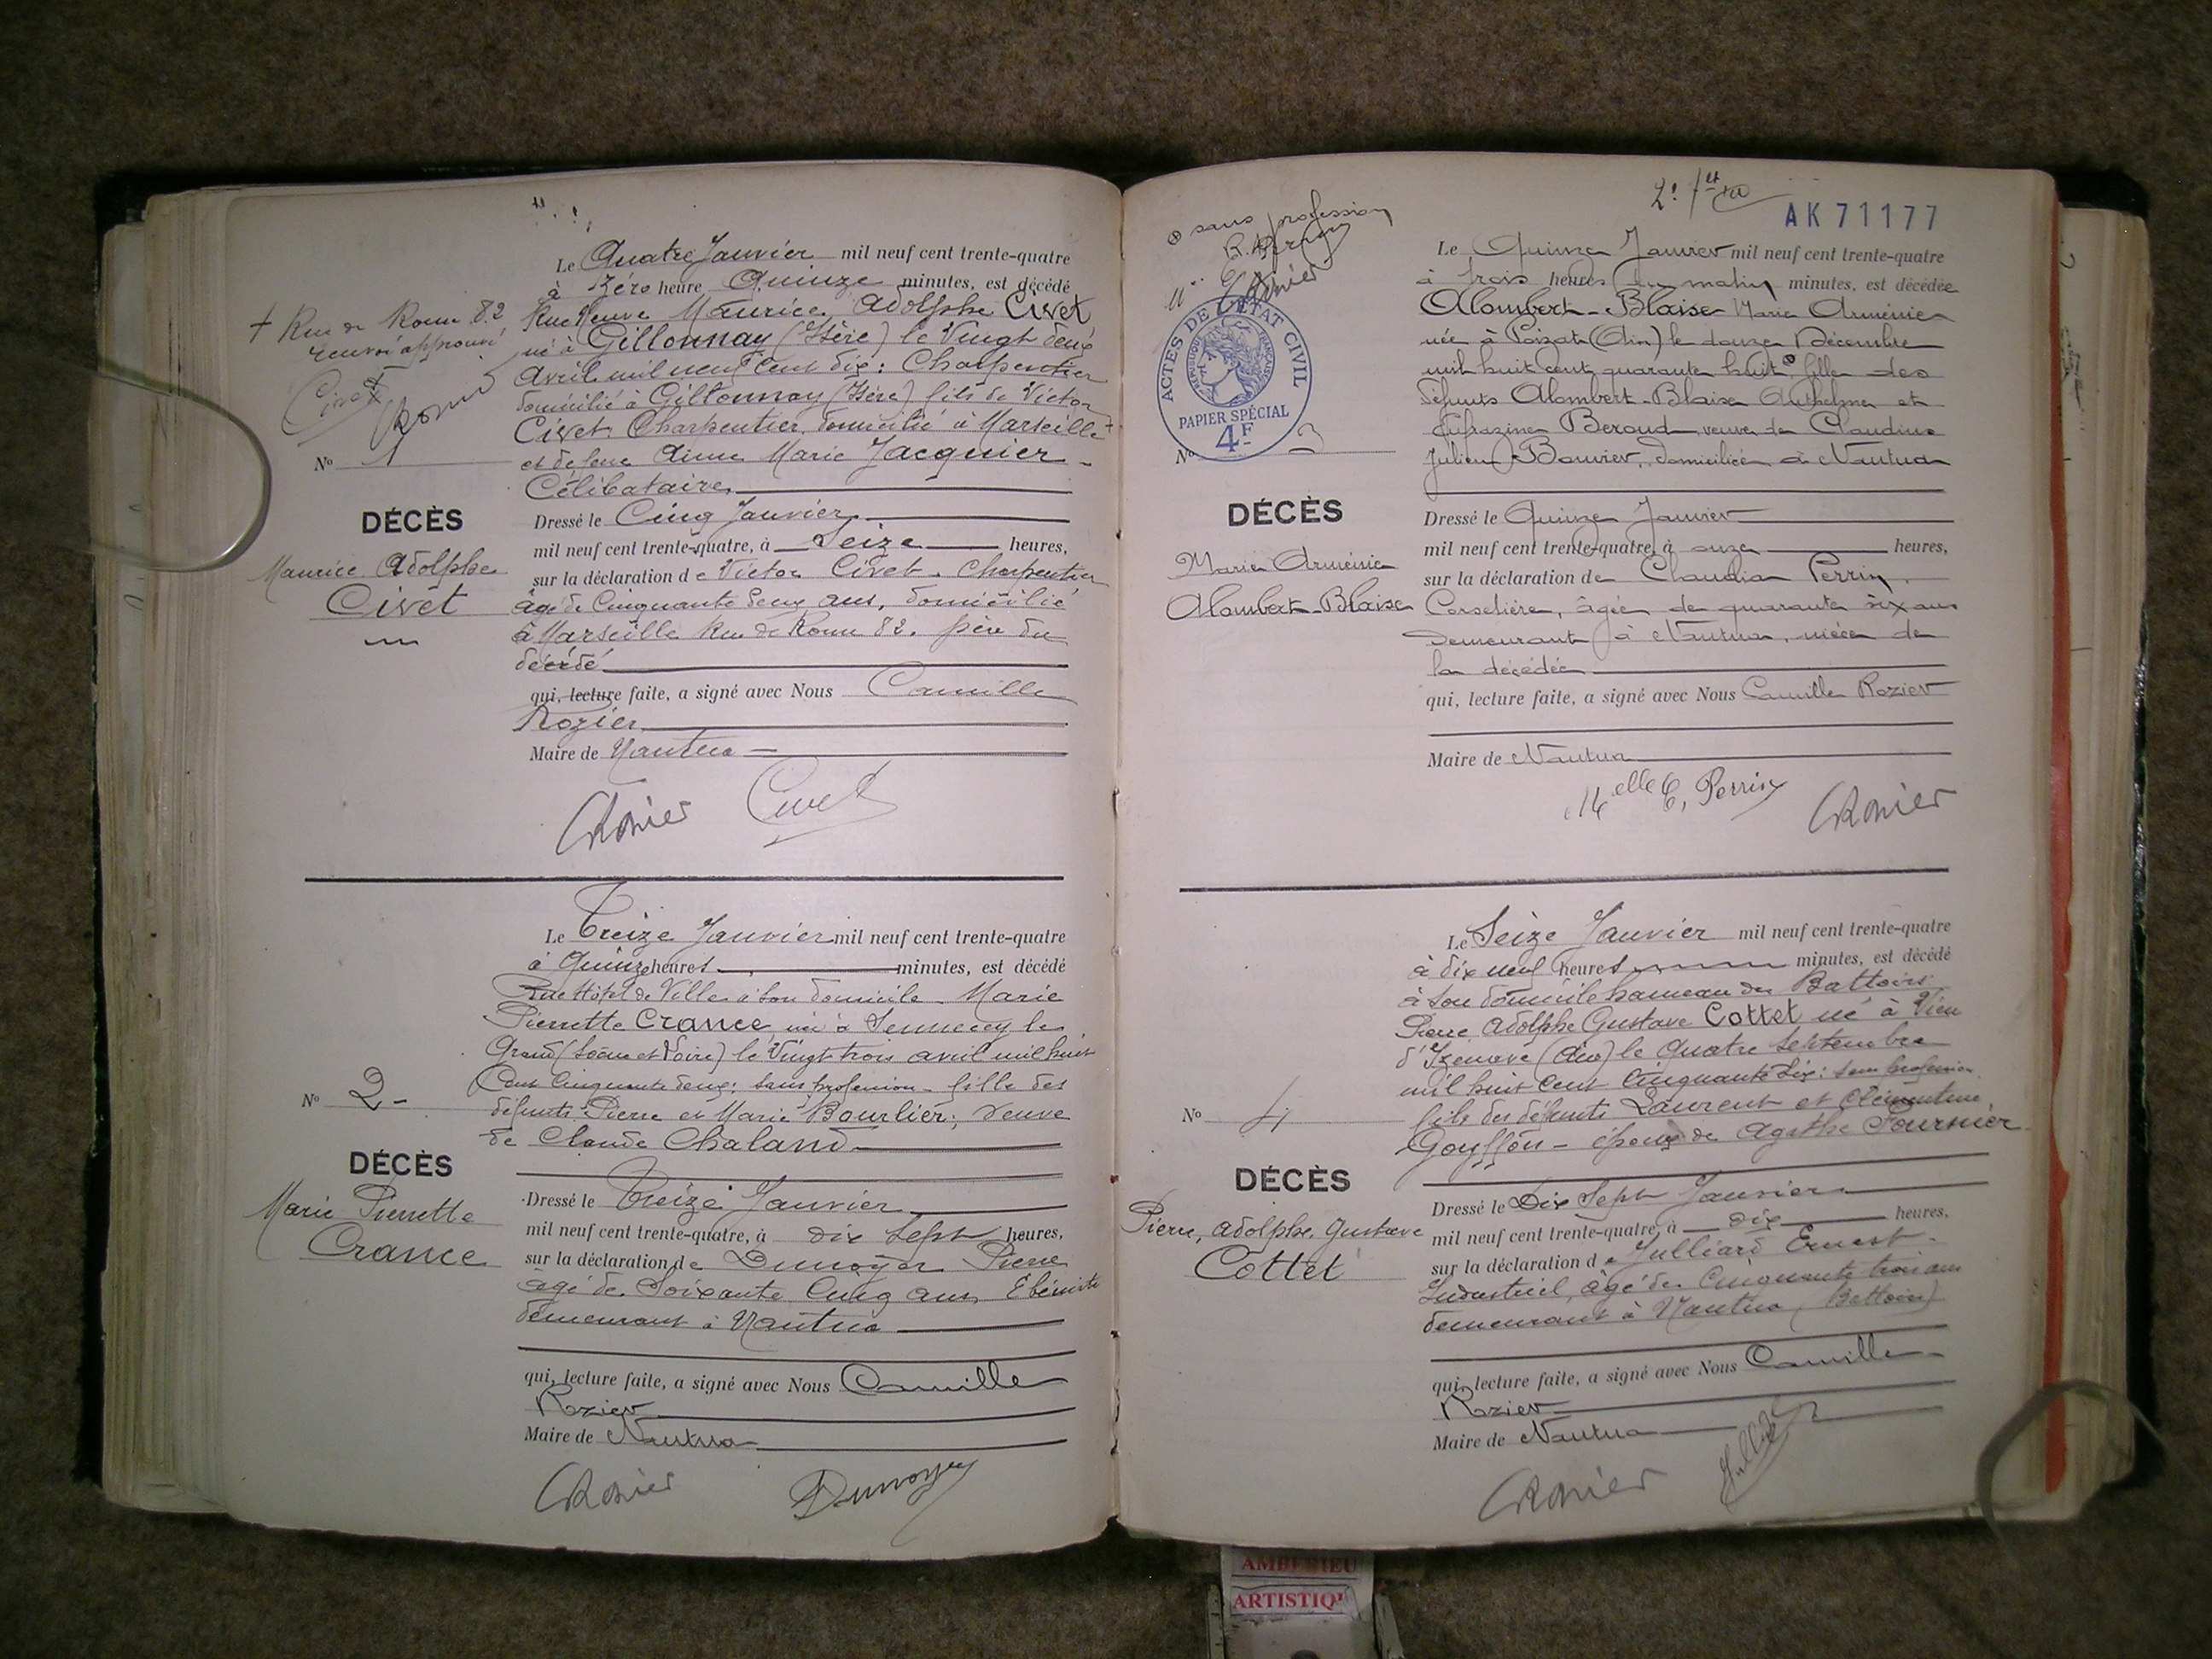 Le Quatre Janvier mil neuf cent trente-quatre
à Zéro heure Quinze minutes, est décédé
Rue Neuve Maurice Adolphe Civet
né à Gillonnay (Isère) le Vingt deux
Avril mil neuf cent dix : Charpentier
domicilié à Gillonnay (Isère) fils de Victor
Civet, Charpentier, domicilié à Marseille +
et de feue Anne Marie Jacquier -
Célibataire
+ Rue de Rome 82
renvoi approuvé
Civet
CRozier
N° 1
DÉCÈS
Maurice Adolphe
Civet
Dressé le Cinq Janvier
mil neuf cent trente-quatre, à Seize heures,
sur la déclaration de Victor Civet. Charpentier
âgé de Cinquante deux ans, domicilié
à Marseille Rue de Rome 82. père du
décédé
qui, lecture faite, a signé avec Nous Camille
Rozier
Maire de Nantua
CRozier Civet
Le Treize Janvier mil neuf cent trente-quatre
à Quinze heures minutes, est décédé
Rue Hôtel de Ville à son domicile. Marie
Pierrette Crance née à Sennecey le
Grand (Saône et Loire) le Vingt trois avril mil huit
Cent Cinquante deux : sans profession - fille des
défunts Pierre et Marie Bourlier ; Veuve
de Claude Chaland
N° 2 -
DÉCÈS
Marie Pierrette
Crance
Dressé le Treize Janvier
mil neuf cent trente-quatre, à dix sept heures,
sur la déclaration de Dunoyer Pierre
âgé de Soixante Cinq ans Ebéniste
demeurant à Nantua
qui, lecture faite, a signé avec Nous Camille
Rozier
Maire de Nantua
CRozier Dunoyer
AK 71177
⊕ sans profession
CRozier
ACTES DE L'ÉTAT CIVIL
RÉPUBLIQUE FRANÇAISE
PAPIER SPÉCIAL
4F
Le Quinze Janvier mil neuf cent trente-quatre
à trois heures du matin minutes, est décédée
Alombert-Blaise Marie Arménie
née à Poizat (Ain) le douze Décembre
mil huit cent quarante huit ⊕ fille des
défunts Alombert-Blaise Anthelme et
Eufrazine Beroud, veuve de Claudius
Julien Bouvier, domiciliée à Nantua
N° 3
DÉCÈS
Marie Arménie
Alombert-Blaise
Dressé le Quinze Janvier
mil neuf cent trente-quatre, à onze heures,
sur la déclaration de Claudia Perrin,
Corsetière, âgée de quarante six ans
Demeurant à Nantua, nièce de
la décédée
qui, lecture faite, a signé avec Nous Camille Rozier
Maire de Nantua
Melle C, Perrin CRozier
Le Seize Janvier mil neuf cent trente-quatre
à dix neuf heures minutes, est décédé
à son domicile hameau des Battoirs
Pierre Adolphe Gustave Cottet né à Vieu
d'Izenave (Ain) le Quatre Septembre
mil huit cent Cinquante Six : sans profession.
fils des défunts Laurent et Clémentine
Gouffon - époux de Agathe Fournier
N° 4
DÉCÈS
Pierre, Adolphe, Gustave
Cottet
Dressé le Dix Sept Janvier
mil neuf cent trente-quatre, à dix heures,
sur la déclaration de Julliard Ernest -
Industriel, âgé de Cinquante trois ans
demeurant à Nantua (Battoirs)
qui, lecture faite, a signé avec Nous Camille
Rozier
Maire de Nantua
CRozier Julliard
AMBERIEU
ARTISTIQU